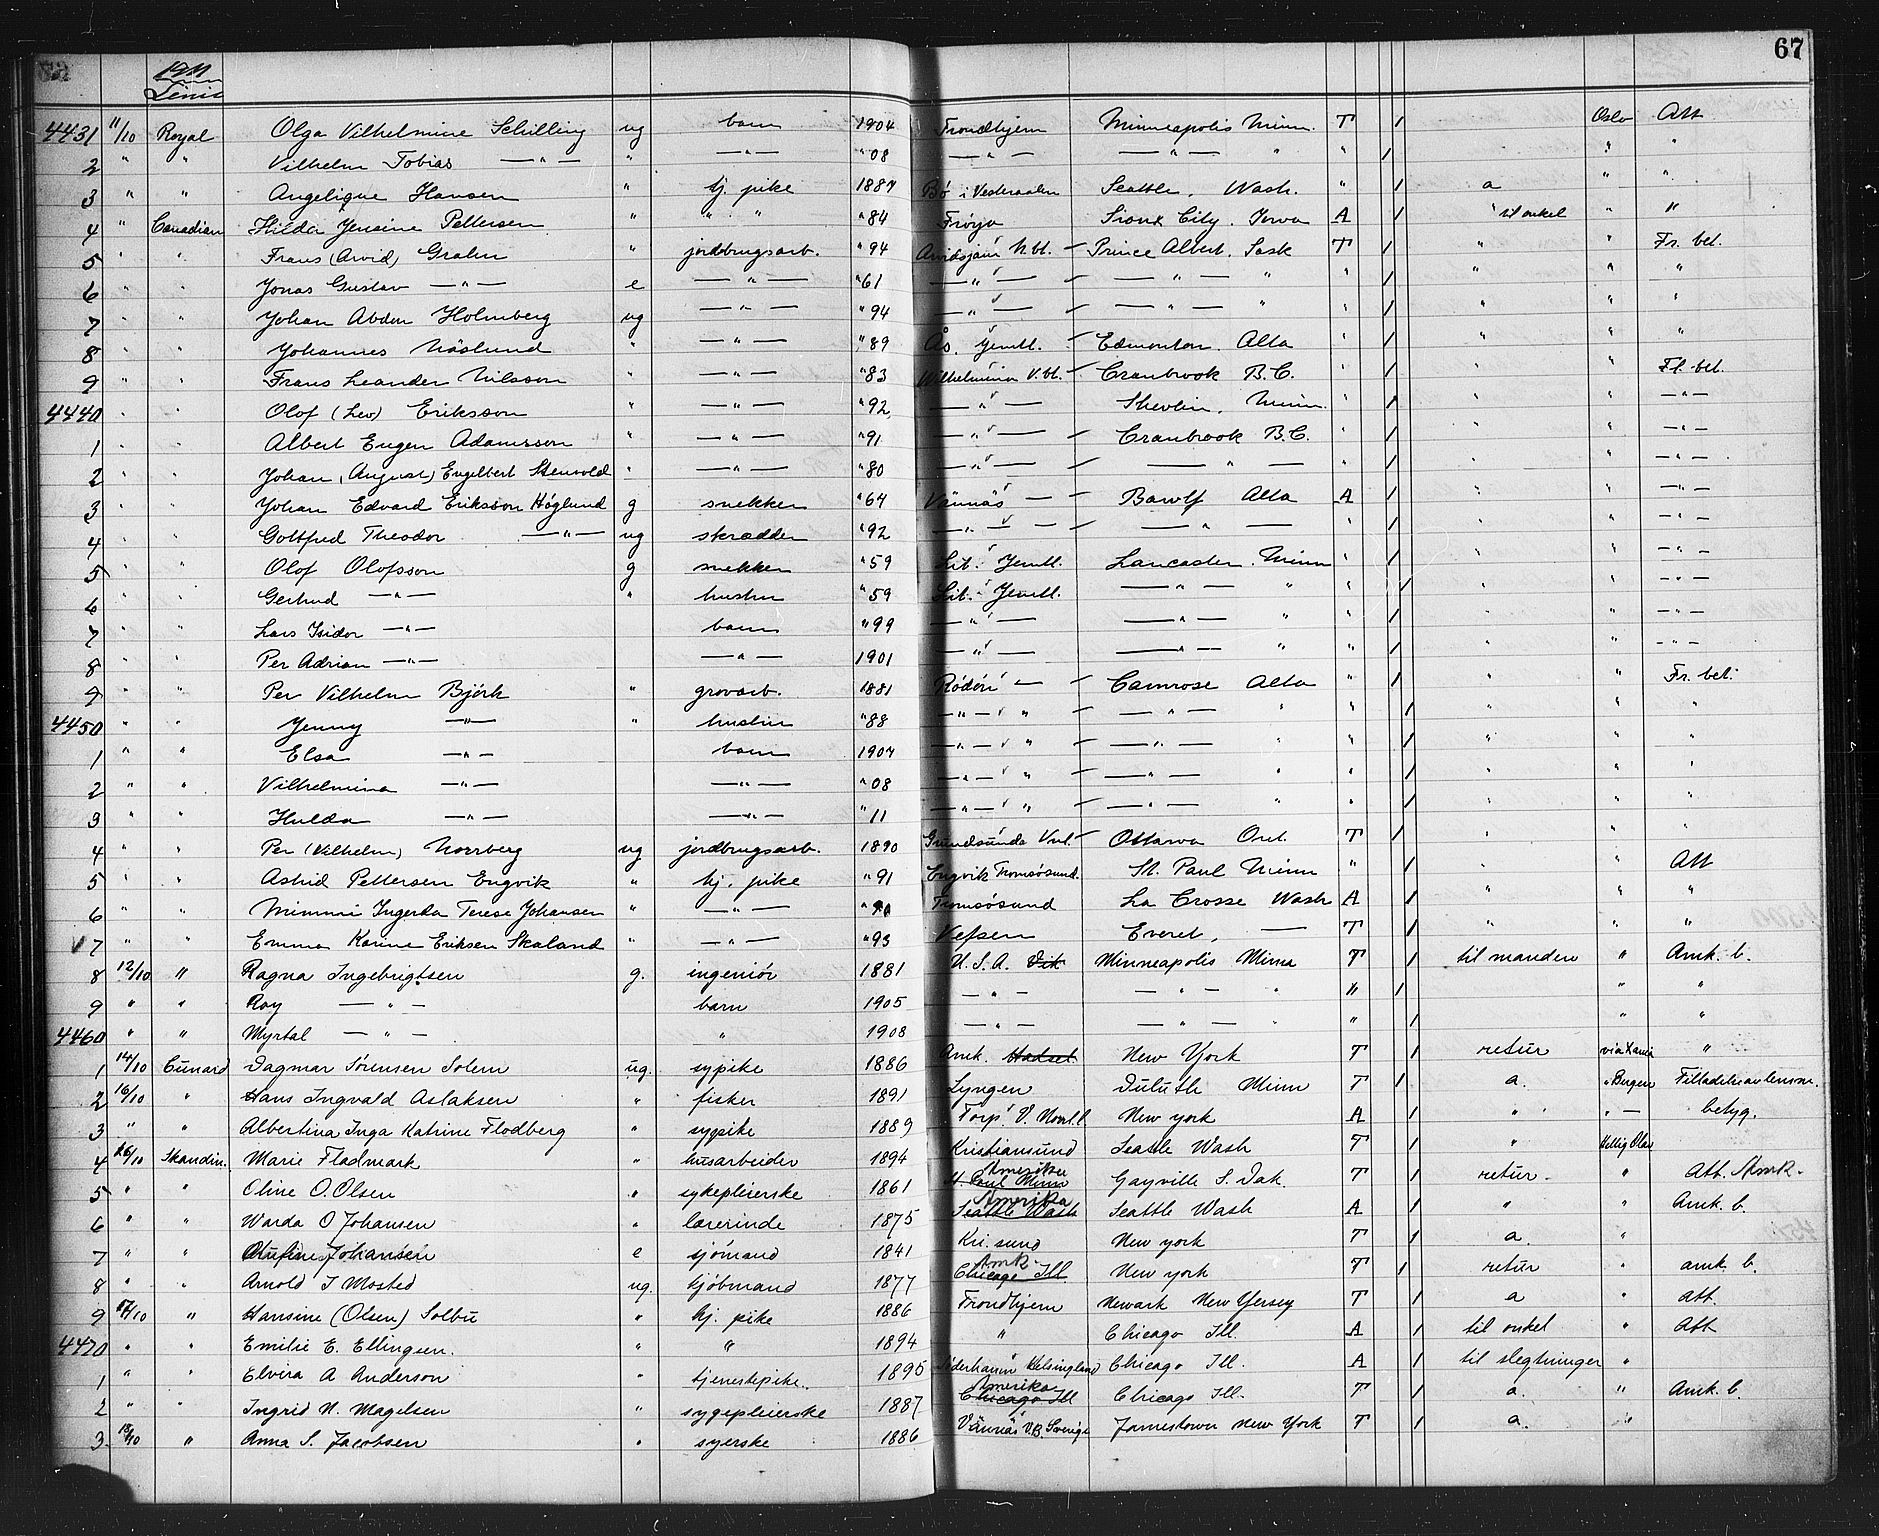 67
1911
Linie
4431 11/10 Royal Olga Vilhelmine Schilling ug barn 1904 Trondhjem Minneapolis Minn. T 1 Oslo Att
2 " " Vilhelm Tobias —"— " —"— "08 —"— —"— " " 1 " "
3 " " Angelique Hansen " tj. pike 1887 Bø i Vesteraalen Seattle, Wash. " 1 a " "
4 " Canadian Hilda Jensine Pettersen " " " "84 Frøya Sioux City, Iowa A 1 " til onkel " "
5 " " Frans (Arvid) Grahn " jordbrugsarb. "94 Arvidsjaur N.bt. — Prince Albert, Sask T 1 " " Fr. bet.
6 " " Jonas Gustav —"— e —"— "61 —"— — —"— " " 1 " " "
7 " " Johan Abdon Holmberg ug —"— "94 —"— — —"— " " 1 " " "
8 " " Johannes Näslund " —"— "89 Ås, Jemtl. — Edmonton, Alta " 1 " " "
9 " " Frans Leander Nilsson " —"— "83 Wilhelmina V.bt. — Cranbrook B.C. " 1 " " Fr. bet.
4440 " " Olof (Lev) Eriksson " —"— "92 —"— Shevlin, Minn. " 1 " " —"—
1 " " Albert Eugen Adamsson " —"— "91 —"— — Cranbrook B.C. " 1 " " —"—
2 " " Johan (August) Engelbert Stenvold " —"— "80 —"— — — " — " 1 " " —"—
3 " " Johan Edvard Eriksson Höglund g snekker "64 Vännäs — — Bawlf Alta A 1 " " —"—
4 " " Gottfred Theodor —"— ug skrædder "92 —"— — — — " — " 1 " " —"—
5 " " Olof Olofsson g snekker "59 Lit. Jemtl. Lancaster, Minn " 1 " " —"—
6 " " Gertrud —"— " hustru "59 Lit. Jemtl. —"— " " 1 " " —"—
7 " " Lars Isidor —"— barn "99 —"— —"— " " 1 " " —"—
8 " " Per Adrian —"— —"— 1901 —"— —"— " " 1 " " —"—
9 " " Per Vilhelm Björk " grovarb. 1881 Rödön — — Camrose Alta " 1 " " Fr. bet.
4450 " " Jenny —"— " hustru "88 —"— " — —"— " " 1 " " "
1 " " Elsa —"— barn 1907 —"— " — —"— " " 1 " " "
2 " " Vilhelmina —"— —"— "08 —"— " — —"— " " 1 " " "
3 " " Hulda —"— —"— "11 —"— " — —"— " " 1 " " "
4 " " Per (Vilhelm) Norrberg ug jordbrugsarb. 1890 Grundsunda Vnl. — Ottawa Ont. T 1 " " "
5 " " Astrid Pettersen Engvik " tj. pike "91 Engvik Tromsøsund. St. Paul Minn " 1 " Att
6 " " Mimmi Ingerda Terese Johansen " —"— " Tromsøsund La Crosse Wash A 1 " " "
7 " " Emma Karine Eriksen Skaland " —"— "93 Vefsen Everet, — T 1 " " "
8 12/10 " Ragna Ingebrigtsen g. ingeniør 1881 U.S.A. Vik Minneapolis Minna T 1 til manden " Amk. b.
9 " " Roy — " — barn 1905 —"— —"— " " 1 " "
4460 " " Myrtal — " — " 1908 —"— —"— " " 1 " "
1 14/10 Cunard Dagmar Sørensen Solem ug. sypike 1886 Amk. Hadsel New York T 1 retur via Xania "
2 16/10 " Hans Ingvald Aslaksen " fisker 1891 Lyngen Duluth Minn T 1 a. " Bergen
3 " " Albertina Inga Katrine Flodberg " sypike 1889 Torp V. Norrl. New york A 1 " " — betyg.
4 16/10 Skandin. Marie Fladmark " husarbeider 1894 Kristiansund Seattle Wash T 1 " Hellig Olav
5 " " Oline O. Olsen " sykepleierske 1861 Amerika St. Paul Minn Gayville S. Dak. T 1 retur. " Att. Amk.
6 " " Warda O Johansen " lærerinde 1875 Amerika Seattle Wash Seattle Wash A 1 " " Amk. b.
7 " " Johansen e sjømand 1841 Kri.sund New york T 1 a. "
8 " " Arnold J Mosted ug. kjøbmand 1877 Amk. Chicago Ill New york T 1 retur " amk. b.
9 17/10 " Hansine (Olsen) Solbu " tj. pike 1886 Trondhjem Newark New Yersey T 1 a " att.
4470 " " Emilie E. Ellingsen. " " 1894 " Chicago Ill. A 1 til onkel " Att
1 " " Elvira A Anderson " tjenestepike. 1895 Söderhamn Helsingland Chicago Ill. A 1 til slegtninger "
2 " " Ingrid N. Magelsen " sygepleierske 1887 Amerika Chicago Ill Chicago Ill. T 1 a. " Amk. b.
3 18/10 " Anna S. Jacobsen " syerske 1886 Vännäs V.B. Sverige Jamestown New York T 1 a. "